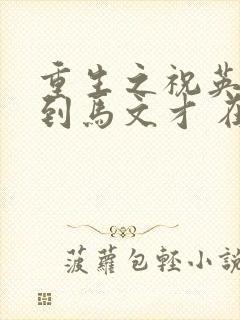 重生之祝英
到馬文才 在
菠蘿包輕小說